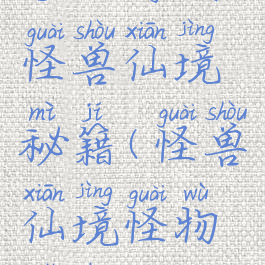 guài shòu xiān jìng
怪兽仙境
mì jí guài shòu
秘籍(怪兽
xiān jìng guài wù
仙境怪物